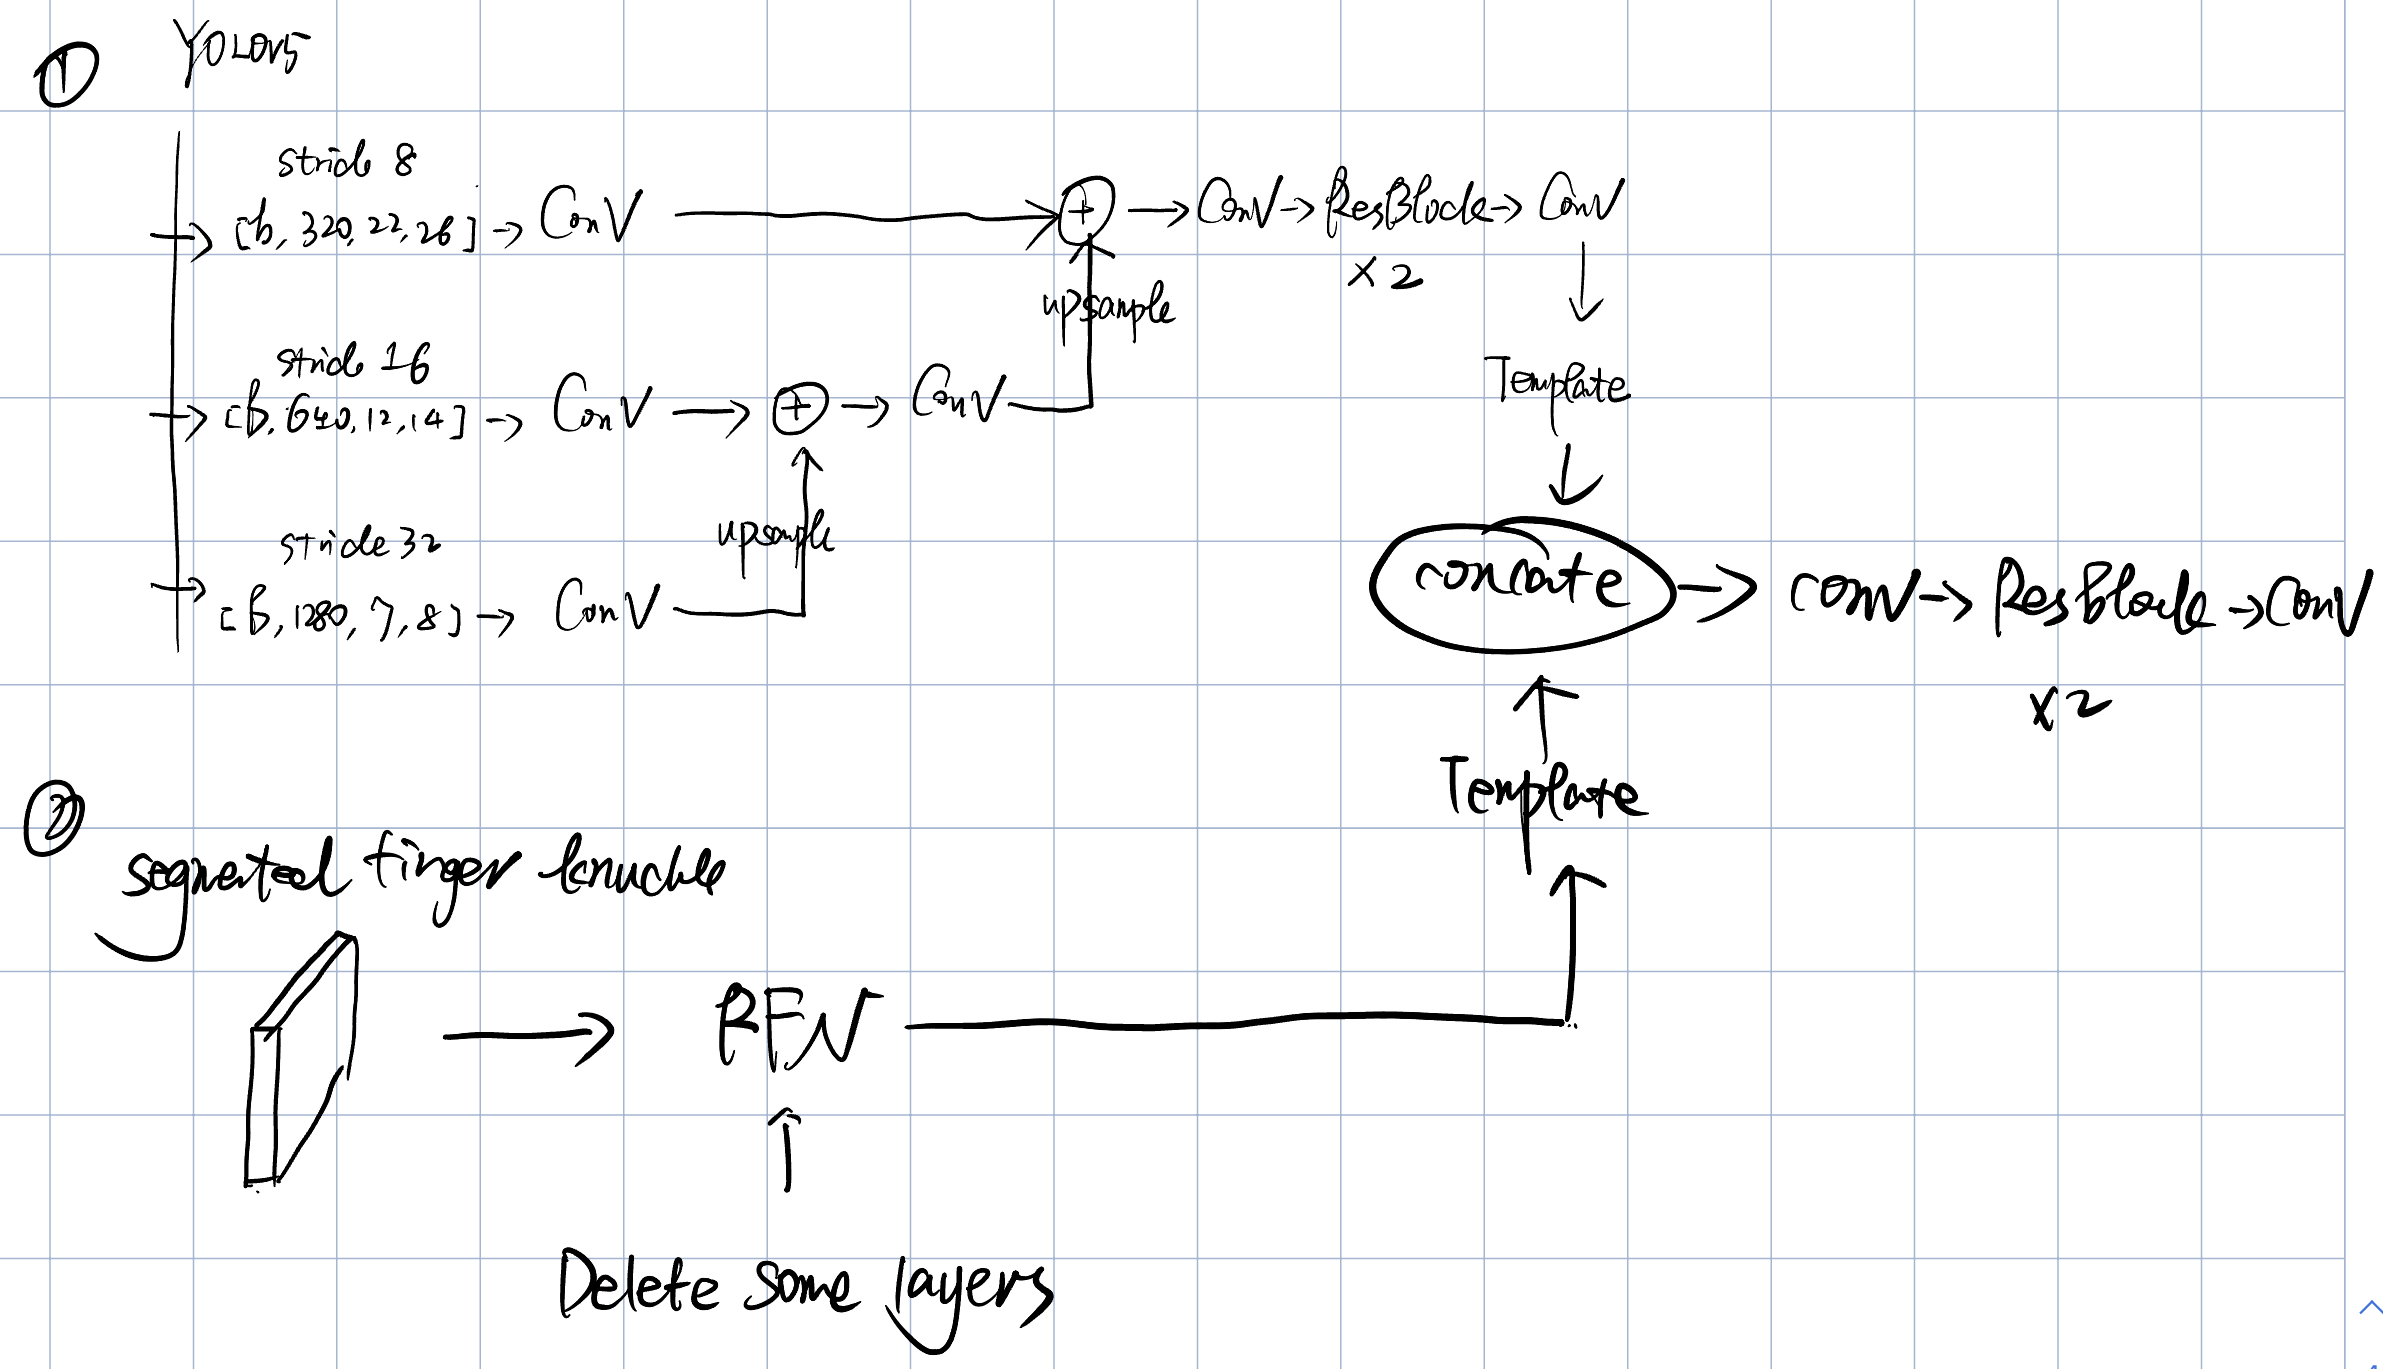 ① YOLOv5
stride 8
[b, 320, 22, 26] → Conv → ⊕ → Conv → ResBlock → Conv
×2
upsample
Template
stride 16
[b, 640, 12, 14] → Conv → ⊕ → Conv
upsample
stride 32
[b, 1280, 7, 8] → Conv
concate → conv → ResBlock → Conv
×2
Template
② segmented finger knuckle
RFN
Delete some layers